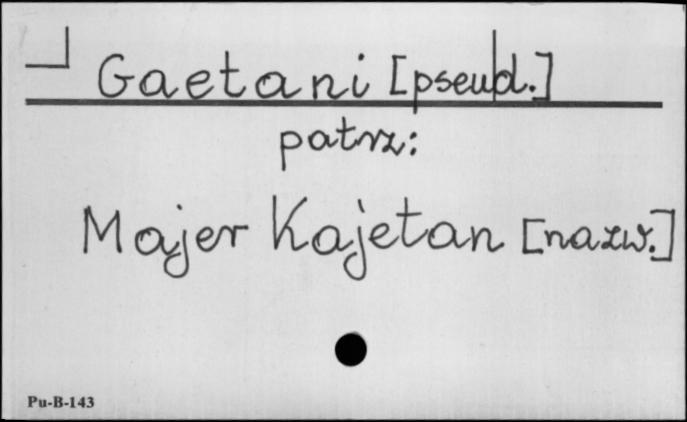 Gaetani [pseud.]
patrz:
Majer Kajetan [nazw.]
Pu-B-143